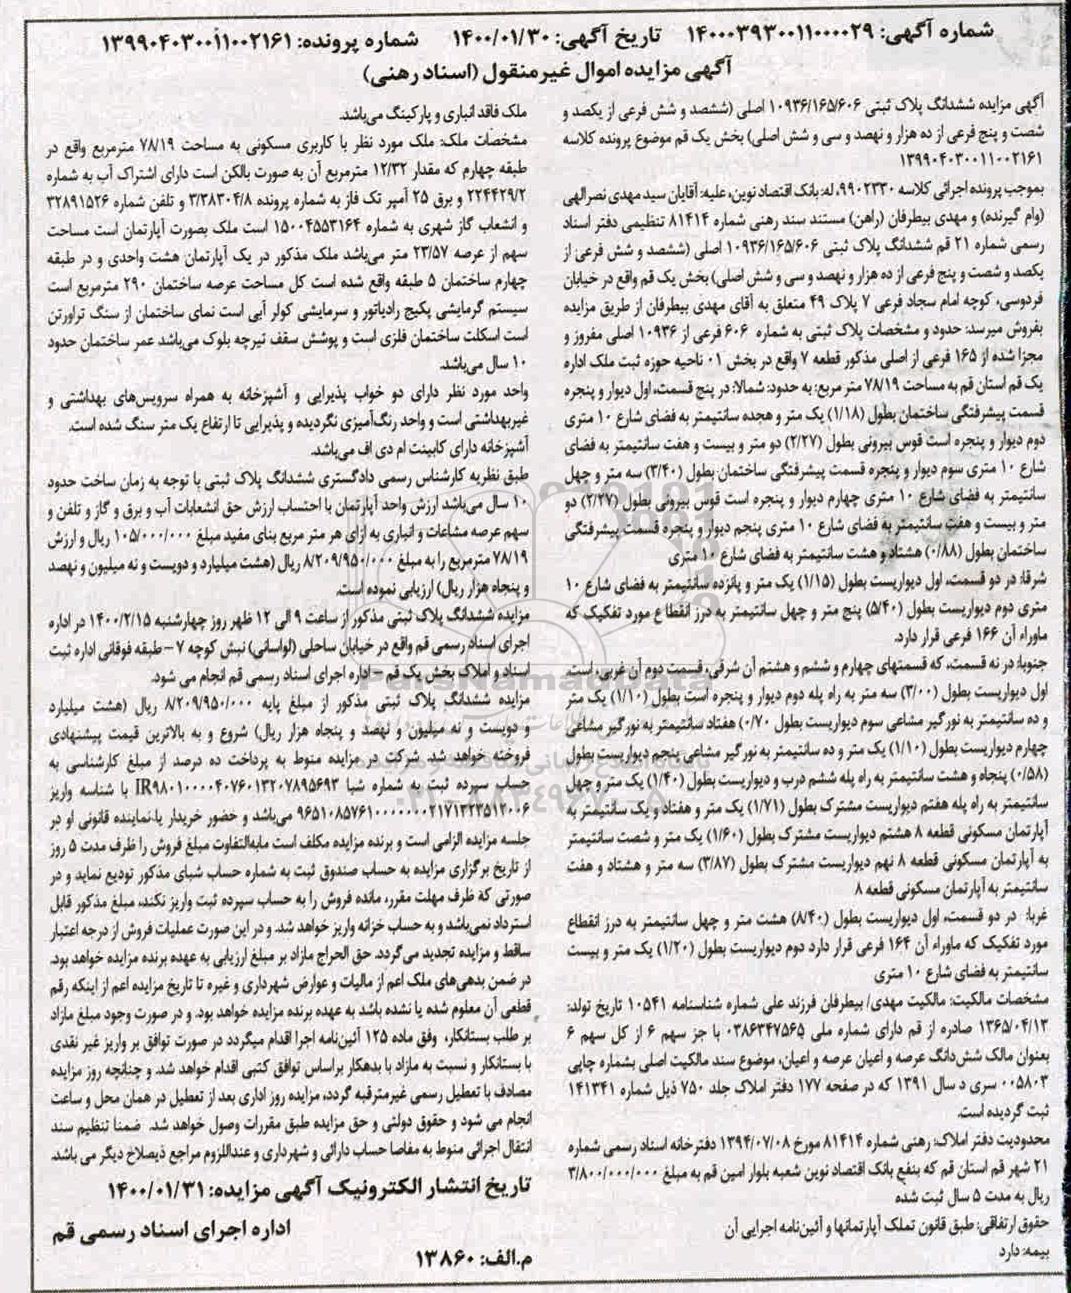 شماره آگهی: ۱۴۰۰۰۳۹۳۰۰۱۱۰۰۰۰۲۹ تاریخ آگهی: ۱۴۰۰/۰۱/۳۰ شماره پرونده: ۱۳۹۹۰۴۰۳۰۰۱۱۰۰۲۱۶۱
آگهی مزایده اموال غیرمنقول (اسناد رهنی)
آگهی مزایده ششدانگ پلاک ثبتی ۱۰۹۳۶/۱۶۵/۶۰۶ اصلی (ششصد و شش فرعی از یکصد و
شصت و پنج فرعی از ده هزار و نهصد و سی و شش اصلی) بخش یک قم موضوع پرونده کلاسه
۱۳۹۹۰۴۰۳۰۰۱۱۰۰۲۱۶۱
بموجب پرونده اجرائی کلاسه ۹۹۰۲۳۳۰، له: بانک اقتصاد نوین، علیه: آقایان سید مهدی نصرالهی
(وام گیرنده) و مهدی بیطرفان (راهن) مستند سند رهنی شماره ۸۱۴۱۴ تنظیمی دفتر اسناد
رسمی شماره ۲۱ قم ششدانگ پلاک ثبتی ۱۰۹۳۶/۱۶۵/۶۰۶ اصلی (ششصد و شش فرعی از
یکصد و شصت و پنج فرعی از ده هزار و نهصد و سی و شش اصلی) بخش یک قم واقع در خیابان
فردوسی، کوچه امام سجاد فرعی ۷ پلاک ۴۹ متعلق به آقای مهدی بیطرفان از طریق مزایده
بفروش میرسد: حدود و مشخصات پلاک ثبتی به شماره ۶۰۶ فرعی از ۱۰۹۳۶ اصلی مفروز و
مجزا شده از ۱۶۵ فرعی از اصلی مذکور قطعه ۷ واقع در بخش ۰۱ ناحیه حوزه ثبت ملک اداره
یک قم استان قم به مساحت ۷۸/۱۹ متر مربع: به حدود: شمالا: در پنج قسمت، اول دیوار و پنجره
قسمت پیشرفتگی ساختمان بطول (۱/۱۸) یک متر و هجده سانتیمتر به فضای شارع ۱۰ متری
دوم دیوار و پنجره است قوس بیرونی بطول (۲/۲۷) دو متر و بیست و هفت سانتیمتر به فضای
شارع ۱۰ متری سوم دیوار و پنجره قسمت پیشرفتگی ساختمان بطول (۳/۴۰) سه متر و چهل
سانتیمتر به فضای شارع ۱۰ متری چهارم دیوار و پنجره است قوس بیرونی بطول (۲/۲۷) دو
متر و بیست و هفت سانتیمتر به فضای شارع ۱۰ متری پنجم دیوار و پنجره قسمت پیشرفتگی
ساختمان بطول (۰/۸۸) هشتاد و هشت سانتیمتر به فضای شارع ۱۰ متری
شرقا: در دو قسمت، اول دیواریست بطول (۱/۱۵) یک متر و پانزده سانتیمتر به فضای شارع ۱۰
متری دوم دیواریست بطول (۵/۴۰) پنج متر و چهل سانتیمتر به درز انقطاع مورد تفکیک که
ماوراء آن ۱۶۶ فرعی قرار دارد.
جنوبا: در نه قسمت، که قسمتهای چهارم و ششم و هشتم آن شرقی، قسمت دوم آن غربی است.
اول دیواریست بطول (۳/۰۰) سه متر به راه پله دوم دیوار و پنجره است بطول (۱/۱۰) یک متر
و ده سانتیمتر به نورگیر مشاعی سوم دیواریست بطول ۰/۷۰) هفتاد سانتیمتر به نورگیر مشاعی
چهارم دیواریست بطول (۱/۱۰) یک متر و ده سانتیمتر به نورگیر مشاعی پنجم دیواریست بطول
(۰/۵۸) پنجاه و هشت سانتیمتر به راه پله ششم درب و دیواریست بطول (۱/۴۰) یک متر و چهل
سانتیمتر به راه پله هفتم دیواریست مشترک بطول (۱/۷۱) یک متر و هفتاد و یک سانتیمتر به
آپارتمان مسکونی قطعه ۸ هشتم دیواریست مشترک بطول (۱/۶۰) یک متر و شصت سانتیمتر
به آپارتمان مسکونی قطعه ۸ نهم دیواریست مشترک بطول (۳/۸۷) سه متر و هشتاد و هفت
سانتیمتر به آپارتمان مسکونی قطعه ۸
غربا: در دو قسمت، اول دیواریست بطول (۸/۴۰) هشت متر و چهل سانتیمتر به درز انقطاع
مورد تفکیک که ماوراء آن ۱۶۴ فرعی قرار دارد دوم دیواریست بطول (۱/۲۰) یک متر و بیست
سانتیمتر به فضای شارع ۱۰ متری
مشخصات مالکیت: مالکیت مهدی/ بیطرفان فرزند علی شماره شناسنامه ۱۰۵۴۱ تاریخ تولد:
۱۳۶۵/۰۴/۱۳ صادره از قم دارای شماره ملی ۰۳۸۶۳۴۷۵۶۵ با جز سهم ۶ از کل سهم ۶
بعنوان مالک شش‌دانگ عرصه و اعیان عرصه و اعیان، موضوع سند مالکیت اصلی بشماره چاپی
۰۰۵۸۰۳ سری د سال ۱۳۹۱ که در صفحه ۱۷۷ دفتر املاک جلد ۷۵۰ ذیل شماره ۱۴۱۳۴۱
ثبت گردیده است.
محدودیت دفتر املاک: رهنی شماره ۸۱۴۱۴ مورخ ۱۳۹۴/۰۷/۰۸ دفترخانه اسناد رسمی شماره
۲۱ شهر قم استان قم که بنفع بانک اقتصاد نوین شعبه بلوار امین قم به مبلغ ۳/۸۰۰/۰۰۰/۰۰۰
ریال به مدت ۵ سال ثبت شده
حقوق ارتفاقی: طبق قانون تملک آپارتمانها و آئین‌نامه اجرایی آن
بیمه: دارد
ملک فاقد انباری و پارکینگ می‌باشد.
مشخصات ملک: ملک مورد نظر با کاربری مسکونی به مساحت ۷۸/۱۹ مترمربع واقع در
طبقه چهارم که مقدار ۱۲/۳۲ مترمربع آن به صورت بالکن است دارای اشتراک آب به شماره
۲۲۴۴۲۹/۲ و برق ۲۵ آمپر تک فاز به شماره پرونده ۳/۳۸۳۰۴/۸ و تلفن شماره ۳۲۸۹۱۵۲۶
و انشعاب گاز شهری به شماره ۱۵۰۰۴۵۵۳۱۶۴ است ملک بصورت آپارتمان است مساحت
سهم از عرصه ۲۳/۵۷ متر می‌باشد ملک مذکور در یک آپارتمان هشت واحدی و در طبقه
چهارم ساختمان ۵ طبقه واقع شده است کل مساحت عرصه ساختمان ۲۹۰ مترمربع است
سیستم گرمایشی پکیج رادیاتور و سرمایشی کولر آبی است نمای ساختمان از سنگ تراورتن
است اسکلت ساختمان فلزی است و پوشش سقف تیرچه بلوک می‌باشد عمر ساختمان حدود
۱۰ سال می‌باشد.
واحد مورد نظر دارای دو خواب پذیرایی و آشپزخانه به همراه سرویس‌های بهداشتی و
غیربهداشتی است و واحد رنگ‌آمیزی نگردیده و پذیرایی تا ارتفاع یک متر سنگ شده است.
آشپزخانه دارای کابینت ام دی اف می‌باشد.
طبق نظریه کارشناس رسمی دادگستری ششدانگ پلاک ثبتی با توجه به زمان ساخت حدود
۱۰ سال می‌باشد ارزش واحد آپارتمان با احتساب ارزش حق انشعابات آب و برق و گاز و تلفن و
سهم عرصه مشاعات و انباری به ازای هر متر مربع بنای مفید مبلغ ۱۰۵/۰۰۰/۰۰۰ ریال و ارزش
۷۸/۱۹ مترمربع را به مبلغ ۸/۲۰۹/۹۵۰/۰۰۰ ریال (هشت میلیارد و دویست و نه میلیون و نهصد
و پنجاه هزار ریال) ارزیابی نموده است.
مزایده ششدانگ پلاک ثبتی مذکور از ساعت ۹ الی ۱۲ ظهر روز چهارشنبه ۱۴۰۰/۲/۱۵ در اداره
اجرای اسناد رسمی قم واقع در خیابان ساحلی (لواسانی) نبش کوچه ۷ - طبقه فوقانی اداره ثبت
اسناد و املاک بخش یک قم - اداره اجرای اسناد رسمی قم انجام می شود.
مزایده ششدانگ پلاک ثبتی مذکور از مبلغ پایه ۸/۲۰۹/۹۵۰/۰۰۰ ریال (هشت میلیارد
و دویست و نه میلیون و نهصد و پنجاه هزار ریال) شروع و به بالاترین قیمت پیشنهادی
فروخته خواهد شد. شرکت در مزایده منوط به پرداخت ده درصد از مبلغ کارشناسی به
حساب سپرده ثبت به شماره شبا IR۹۸۰۱۰۰۰۰۴۰۷۶۰۱۳۲۰۷۸۹۵۶۹۳ با شناسه واریز
۹۶۵۱۰۸۵۷۶۱۰۰۰۰۰۰۰۲۱۷۱۳۲۳۵۱۲۰۰۶ می‌باشد و حضور خریدار یا نماینده قانونی او در
جلسه مزایده الزامی است و برنده مزایده مکلف است مابه‌التفاوت مبلغ فروش را ظرف مدت ۵ روز
از تاریخ برگزاری مزایده به حساب صندوق ثبت به شماره حساب شبای مذکور تودیع نماید و در
صورتی که ظرف مهلت مقرر، مانده فروش را به حساب سپرده ثبت واریز نکند، مبلغ مذکور قابل
استرداد نمی‌باشد و به حساب خزانه واریز خواهد شد. و در این صورت عملیات فروش از درجه اعتبار
ساقط و مزایده تجدید می‌گردد. حق الحراج مازاد بر مبلغ ارزیابی به عهده برنده مزایده خواهد بود.
در ضمن بدهی‌های ملک اعم از مالیات و عوارض شهرداری و غیره تا تاریخ مزایده اعم از اینکه رقم
قطعی آن معلوم شده یا نشده باشد به عهده برنده مزایده خواهد بود. و در صورت وجود مبلغ مازاد
بر طلب بستانکار، وفق ماده ۱۲۵ آئین‌نامه اجرا اقدام میگردد در صورت توافق بر واریز غیر نقدی
با بستانکار و نسبت به مازاد با بدهکار براساس توافق کتبی اقدام خواهد شد. و چنانچه روز مزایده
مصادف با تعطیل رسمی غیرمترقبه گردد، مزایده روز اداری بعد از تعطیل در همان محل و ساعت
انجام می شود و حقوق دولتی و حق مزایده طبق مقررات وصول خواهد شد. ضمنا تنظیم سند
انتقال اجرائی منوط به مفاصا حساب دارائی و شهرداری و عنداللزوم مراجع ذیصلاح دیگر می باشد.
تاریخ انتشار الکترونیک آگهی مزایده: ۱۴۰۰/۰۱/۳۱
اداره اجرای اسناد رسمی قم
م.الف: ۱۳۸۶۰